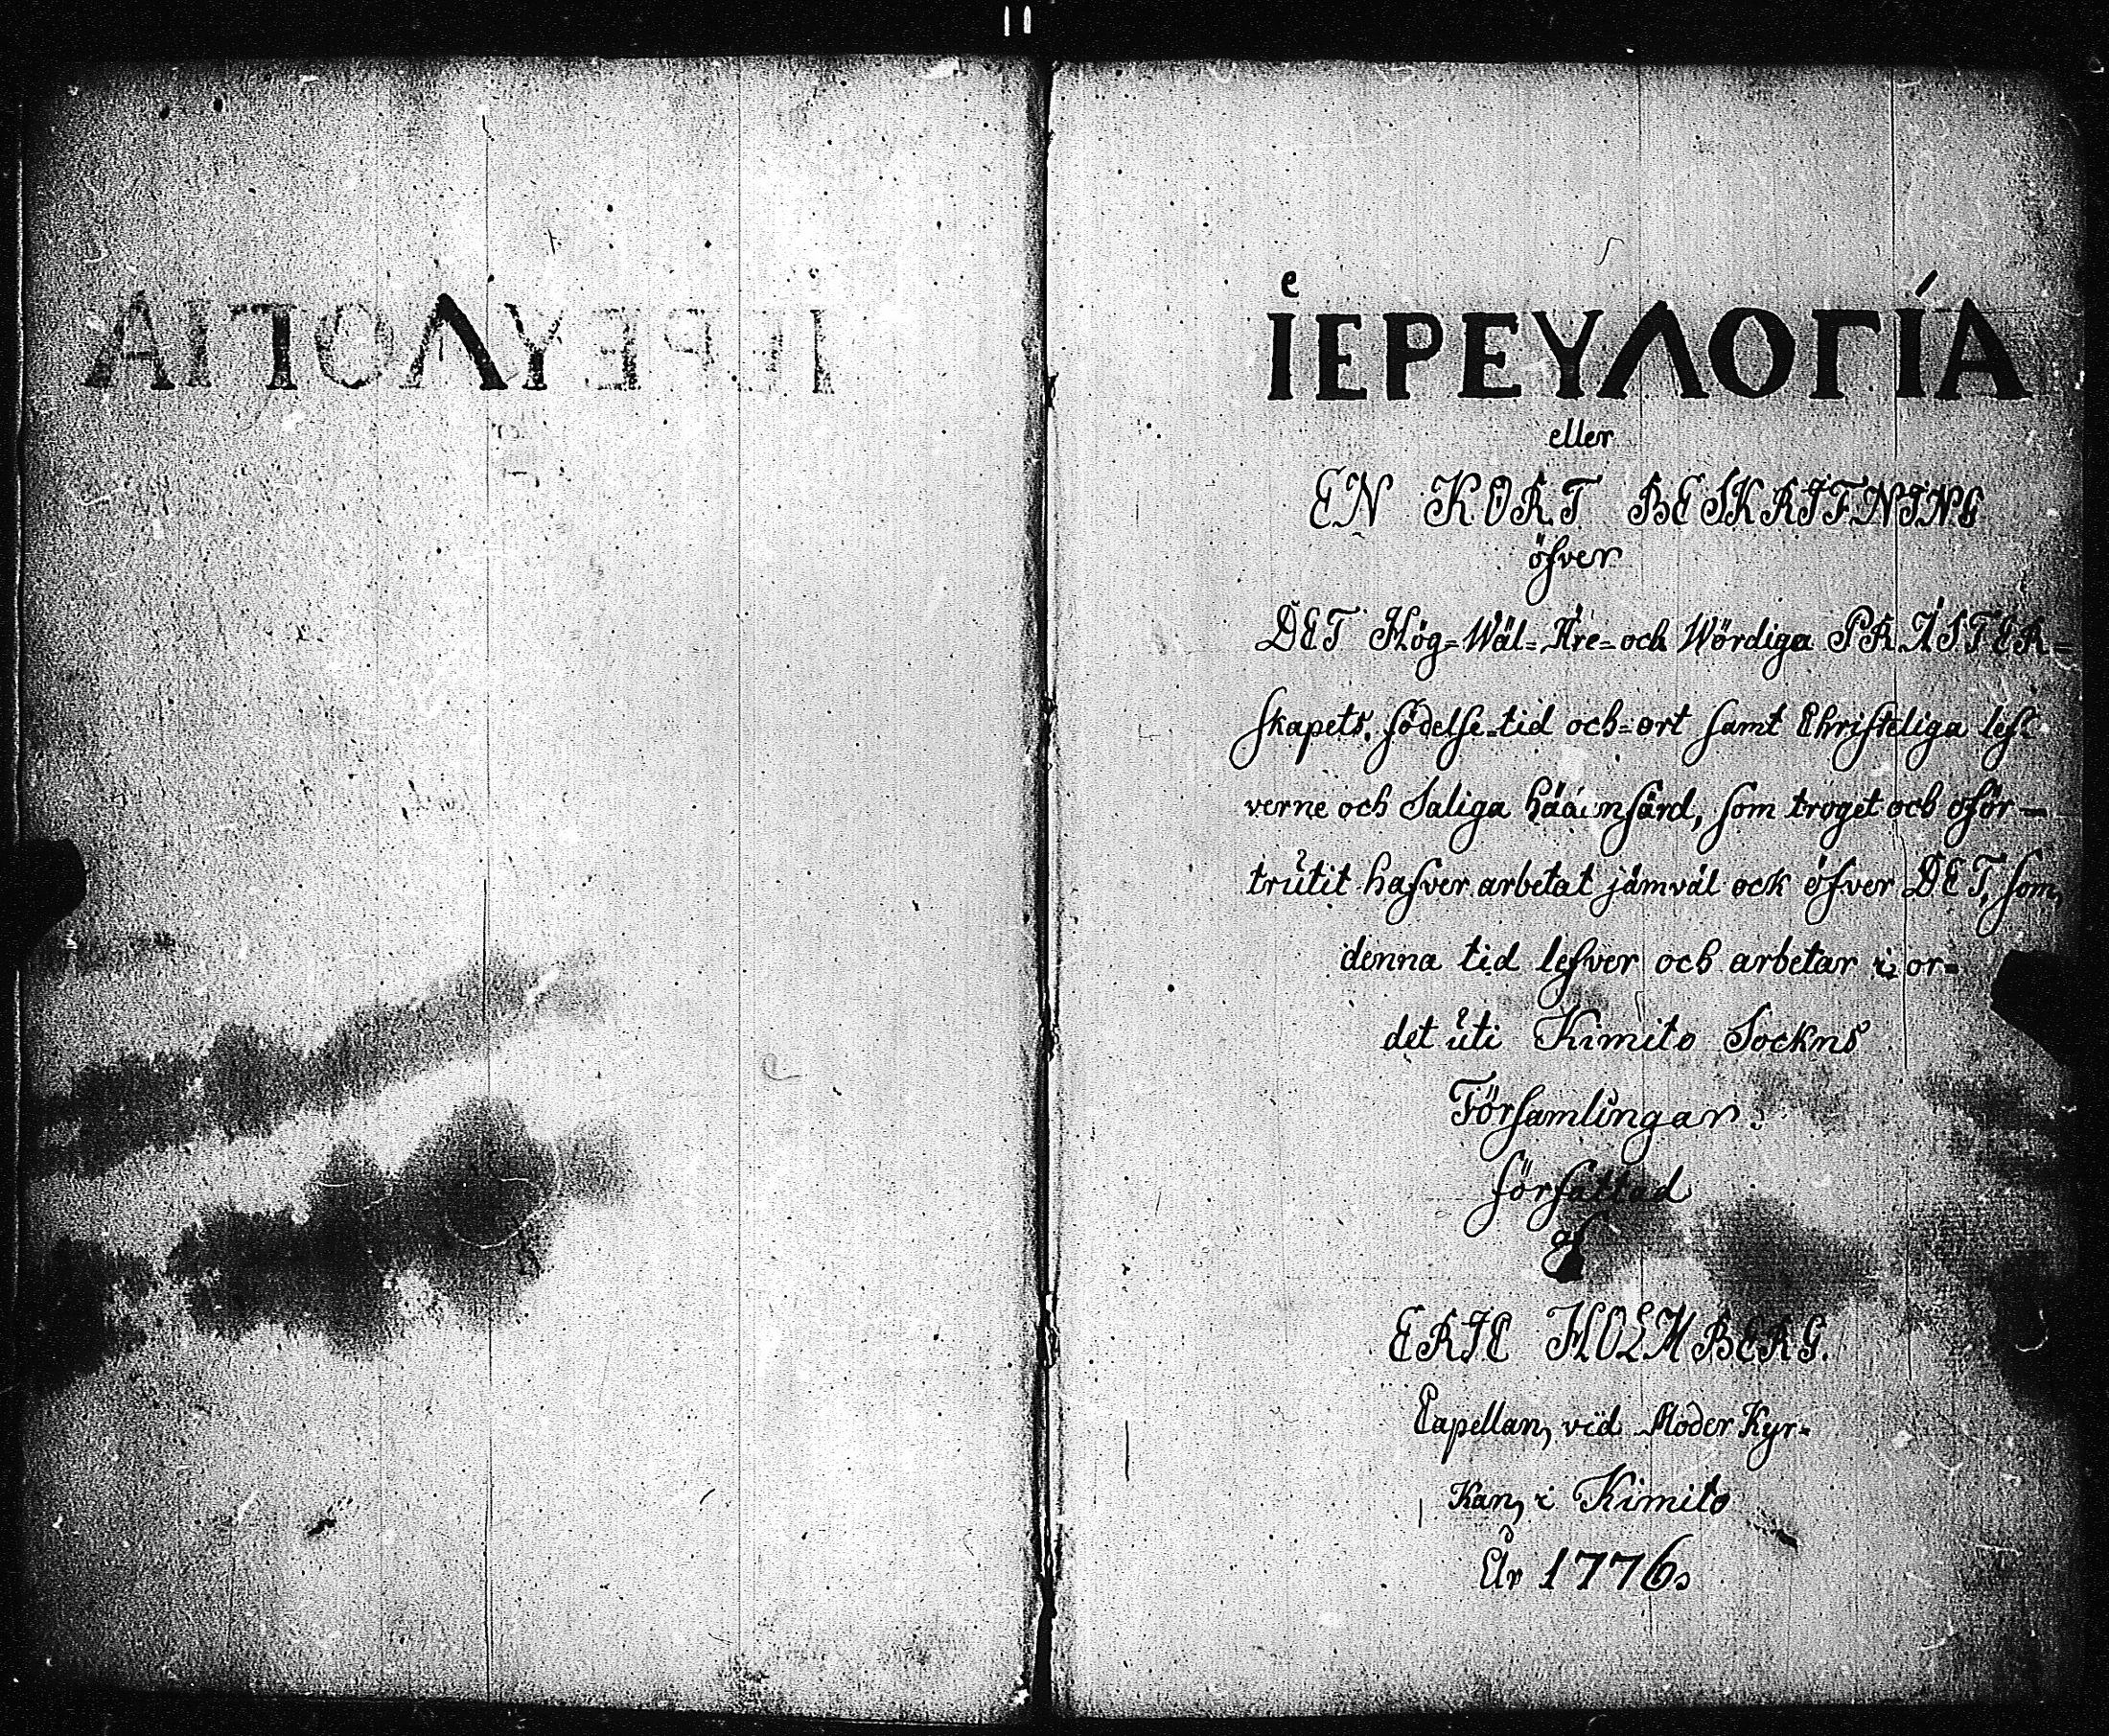 ἹΕΡΕΥΛΟΓΊΑ
eller
EN KORT BESKRIFNING
öfver
DET Hög=Wäl=Äre=och Wördiga PRÄSTER=
skapets, födelse=tid och=ort samt Christeliga lef=
verne och Saliga häänfärd, som troget och oför—
trutit hafver arbetat jämväl ock öfver DET, som,
denna tid lefver och arbetar i, or=
det uti Kimito Sockns
Församlingar:
författad
af
ERIC HOLMBERG.
Capellan, vid Moder Kyr=
kan, i Kimito
År 1776.